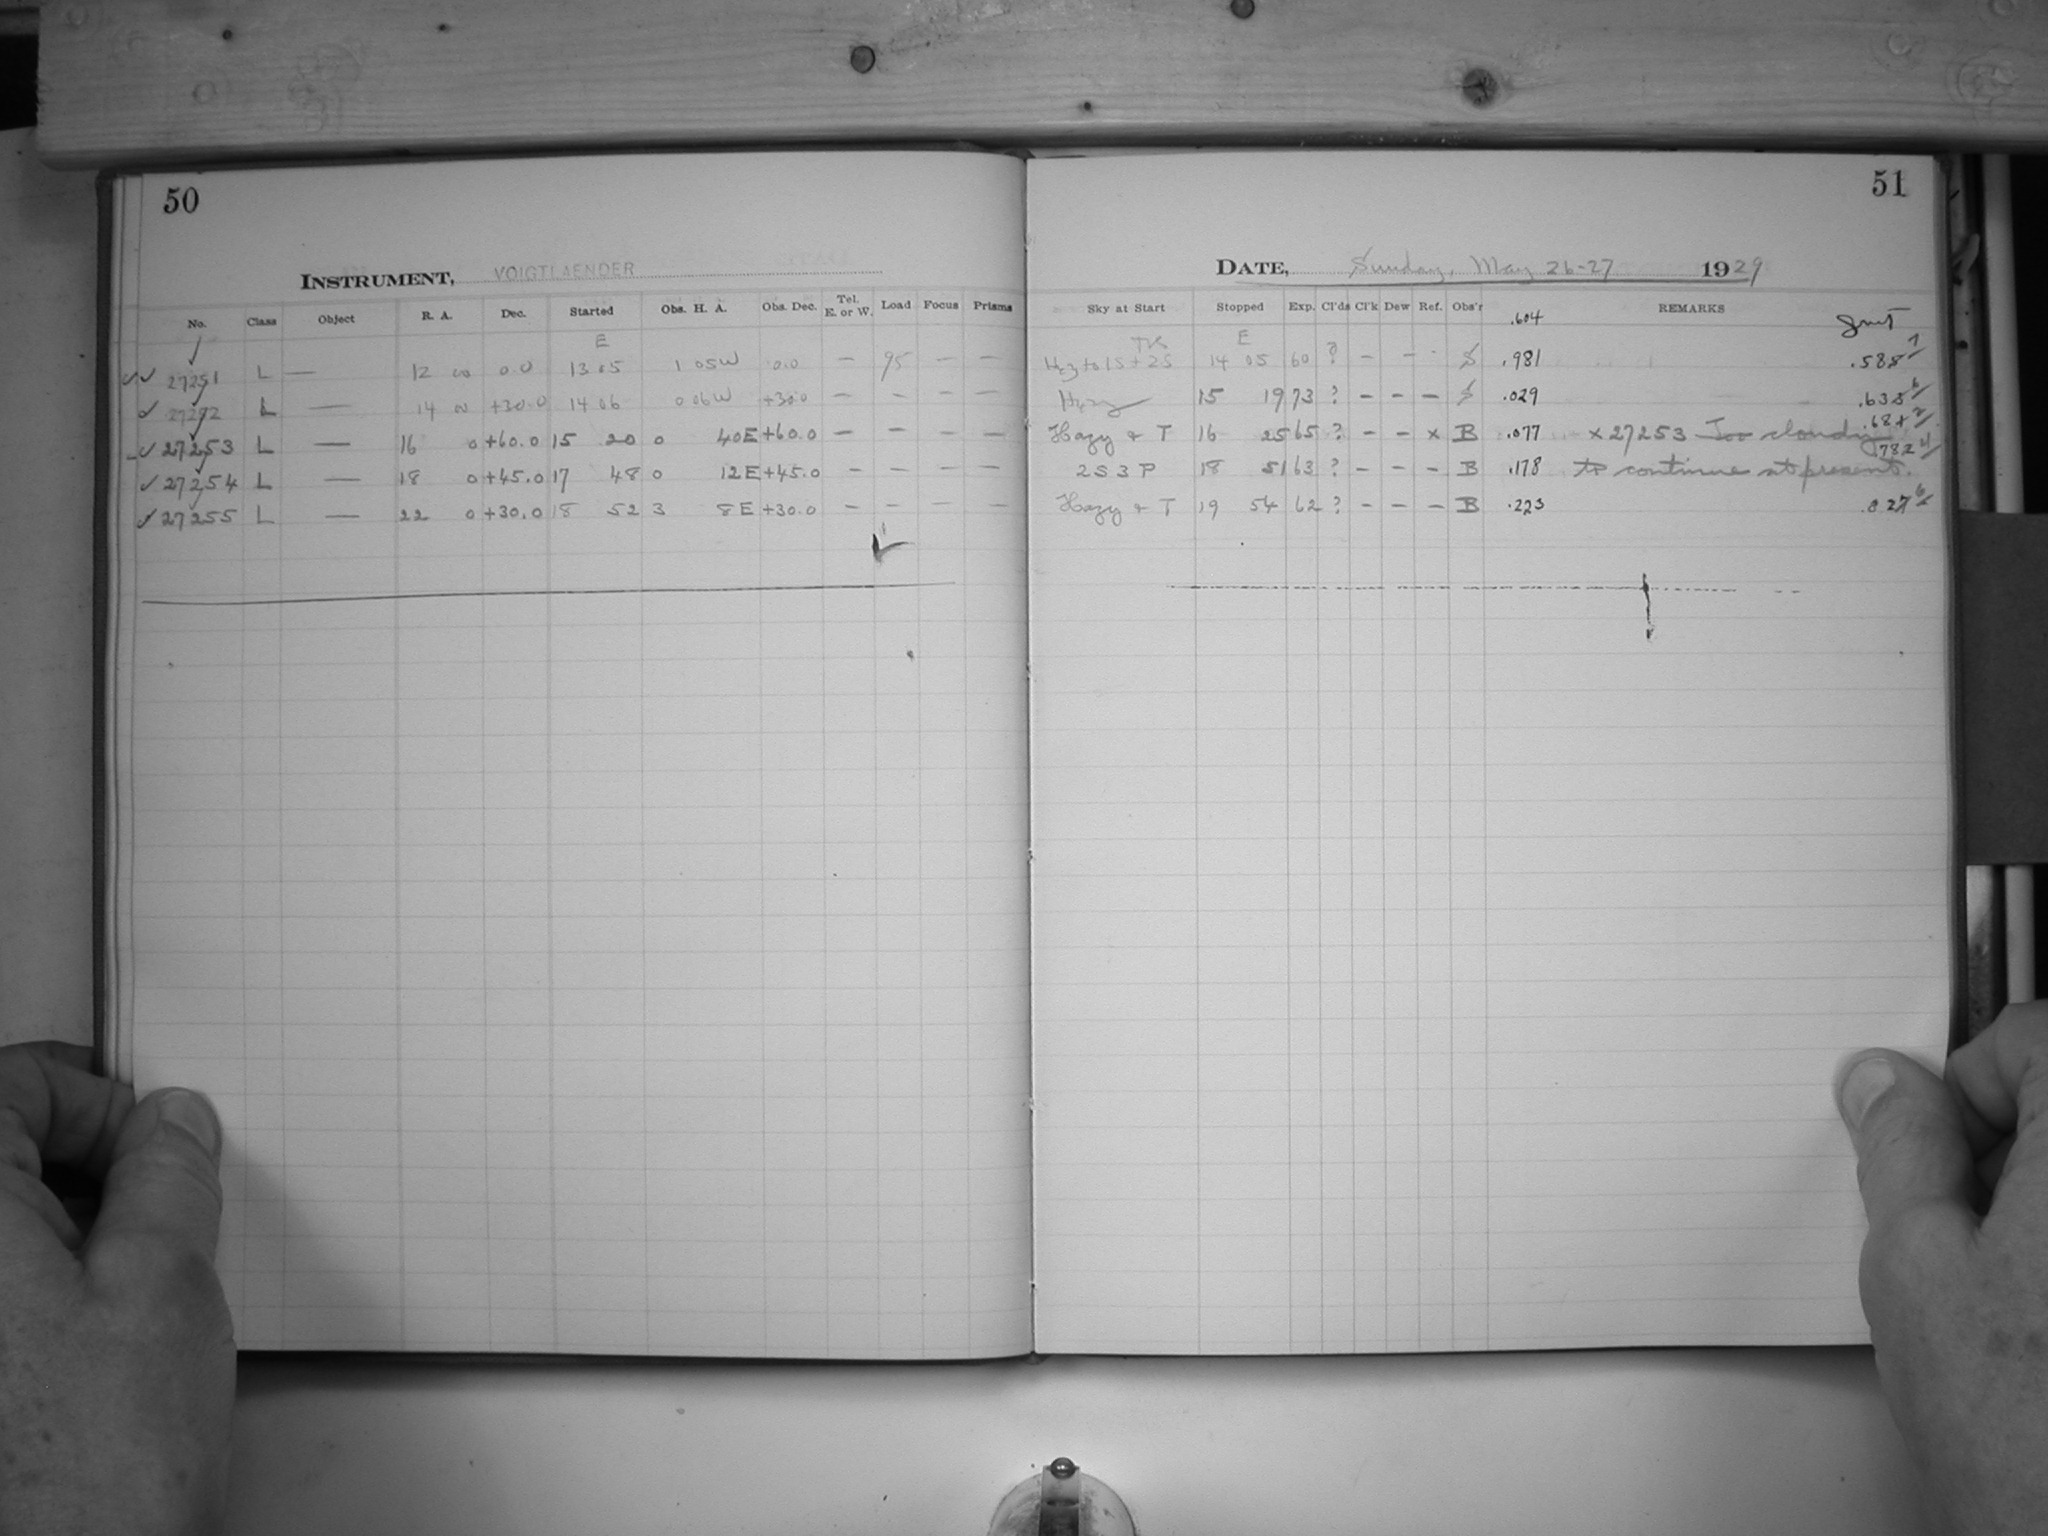 50
INSTRUMENT, VOIGTLAENDER
No. Class Object R. A. Dec. Started Obs. H. A. Obs. Dec. Tel. E. or W. Load Focus Prisms
E
27251 L — 12 00 0.0 13 05 1 05W 0.0 — 95 — —
27252 L — 14 00 +30.0 14 06 0 06W +30.0 — — — —
27253 L — 16 0 +60.0 15 20 0 40E +60.0 — — — —
27254 L — 18 0 +45.0 17 48 0 12E +45.0 — — — —
27255 L — 22 0 +30.0 18 52 3 8E +30.0 — — — —
51
DATE, Sunday, May 26-27 1929
Sky at Start Stopped Exp. Cl'ds Cl'k Dew Ref. Obs'r REMARKS
.604
E
Hz3 to 1S+2S 14 05 60 ? — — .981
Hazy 15 19 73 ? — — — .029
Hazy & T 16 25 65 ? — — x B .077 x 27253 Too cloudy
2S 3P 18 51 63 ? — — — B .178 to continue at present.
Hazy & T 19 54 62 ? — — — B .223